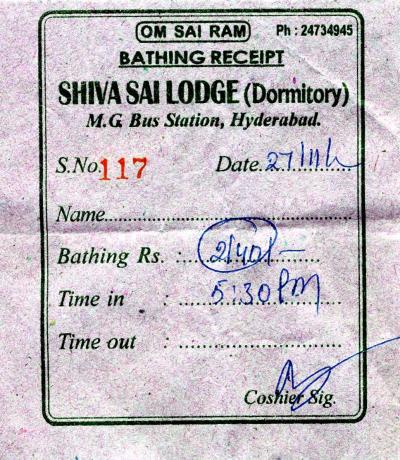 OM SAI RAM Ph : 24734945
BATHING RECEIPT
SHIVA SAI LODGE (Dormitory)
M.G. Bus Station, Hyderabad.
S.No. 117 Date 27/11/
Name
Bathing Rs. : 2/40/-
Time in : 5:30 PM
Time out :
Coshier Sig.